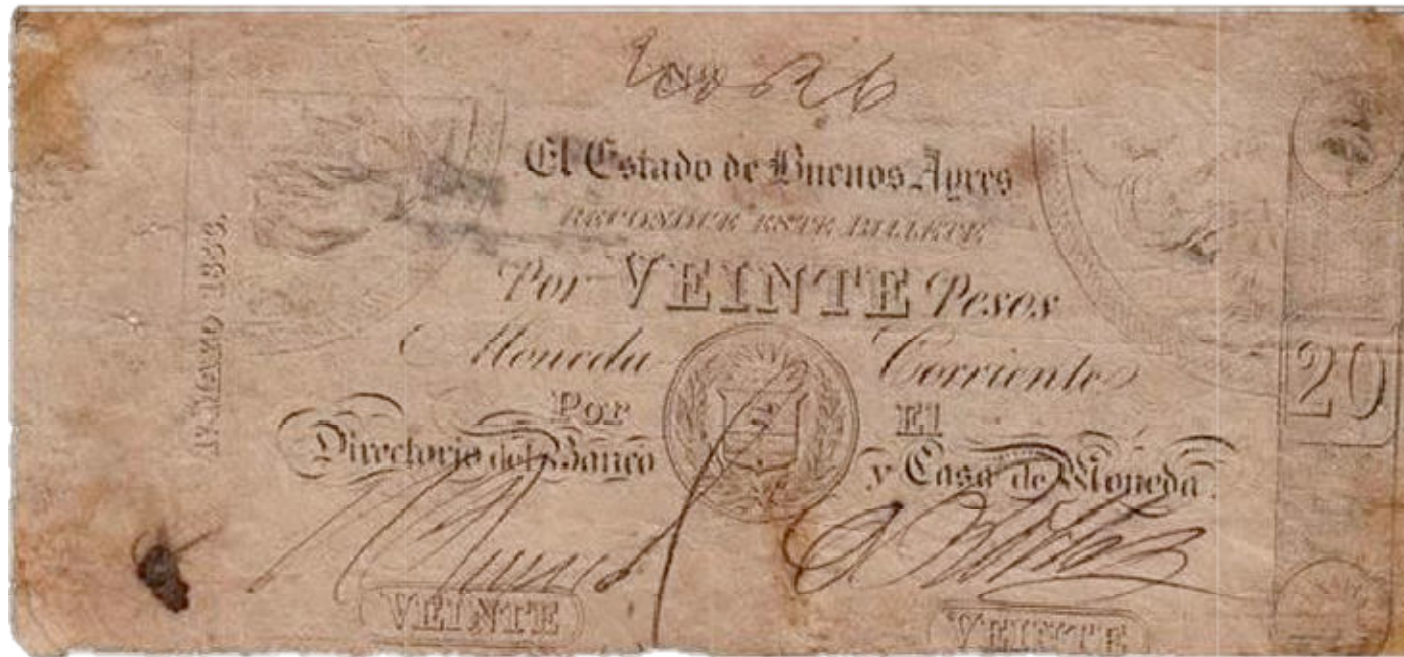 El Estado de Buenos Ayres
RECONOCE ESTE BILLETE
Por VEINTE Pesos
Moneda Corriente
Por El
Directorio del Banco y Casa de Moneda.
VEINTE VEINTE
20